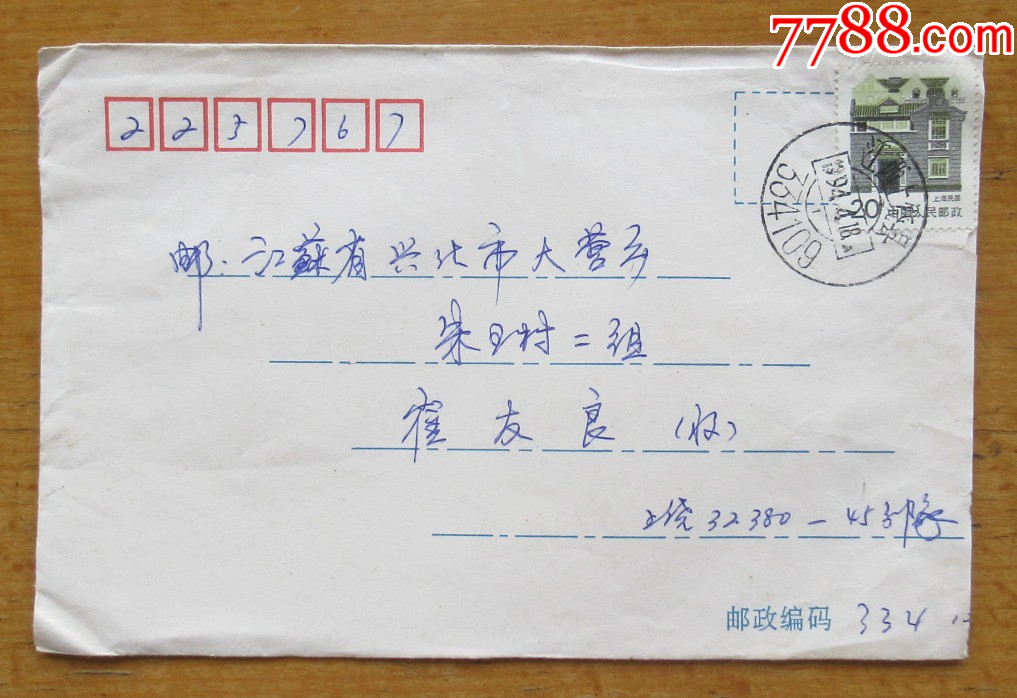 7788.com
223767
上海民居
20分 中国人民邮政
334109
1994
18
邮:江蘇省兴化市大营乡
朱王村二组
崔友良(收)
上饶32380—45部队
邮政编码 334